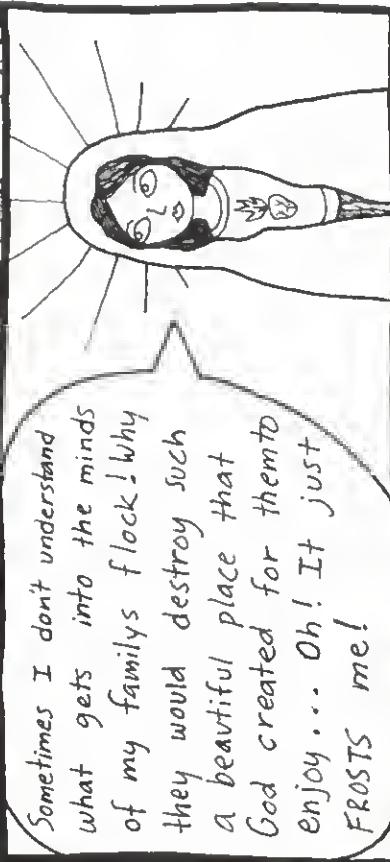 Sometimes I don't understand
what gets into the minds
of my familys flock! Why
they would destroy such
a beautiful place that
God created for them to
enjoy... Oh! It just
FROSTS me!